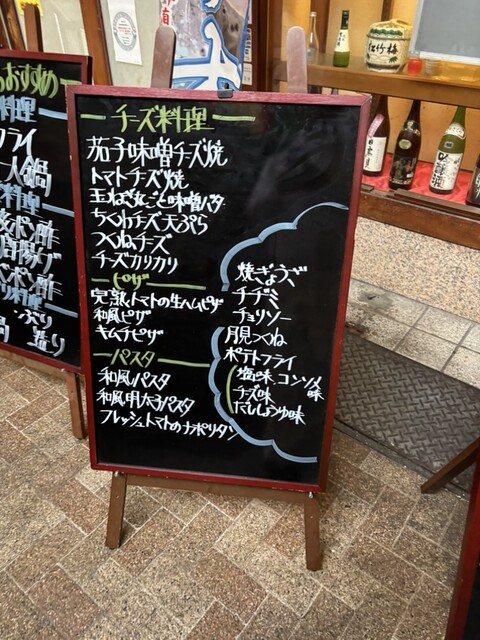 チーズ料理
茄子味噌チーズ焼
トマトチーズ焼
玉ねぎ丸ごと味噌バター
ちくわチーズ天ぷら
つくねチーズ
チーズカリカリ
ピザ
完熟トマトの生ハムピザ
和風ピザ
キムチピザ
パスタ
和風パスタ
和風明太子パスタ
フレッシュトマトのナポリタン
焼ぎょうざ
チヂミ
チョリソー
月見つくね
ポテトフライ
塩味、コンソメ味
チーズ味
だししょうゆ味
おすすめ
料理
フライ
一人鍋
料理
ポン酢
唐揚げ
ポン酢
料理
松竹梅